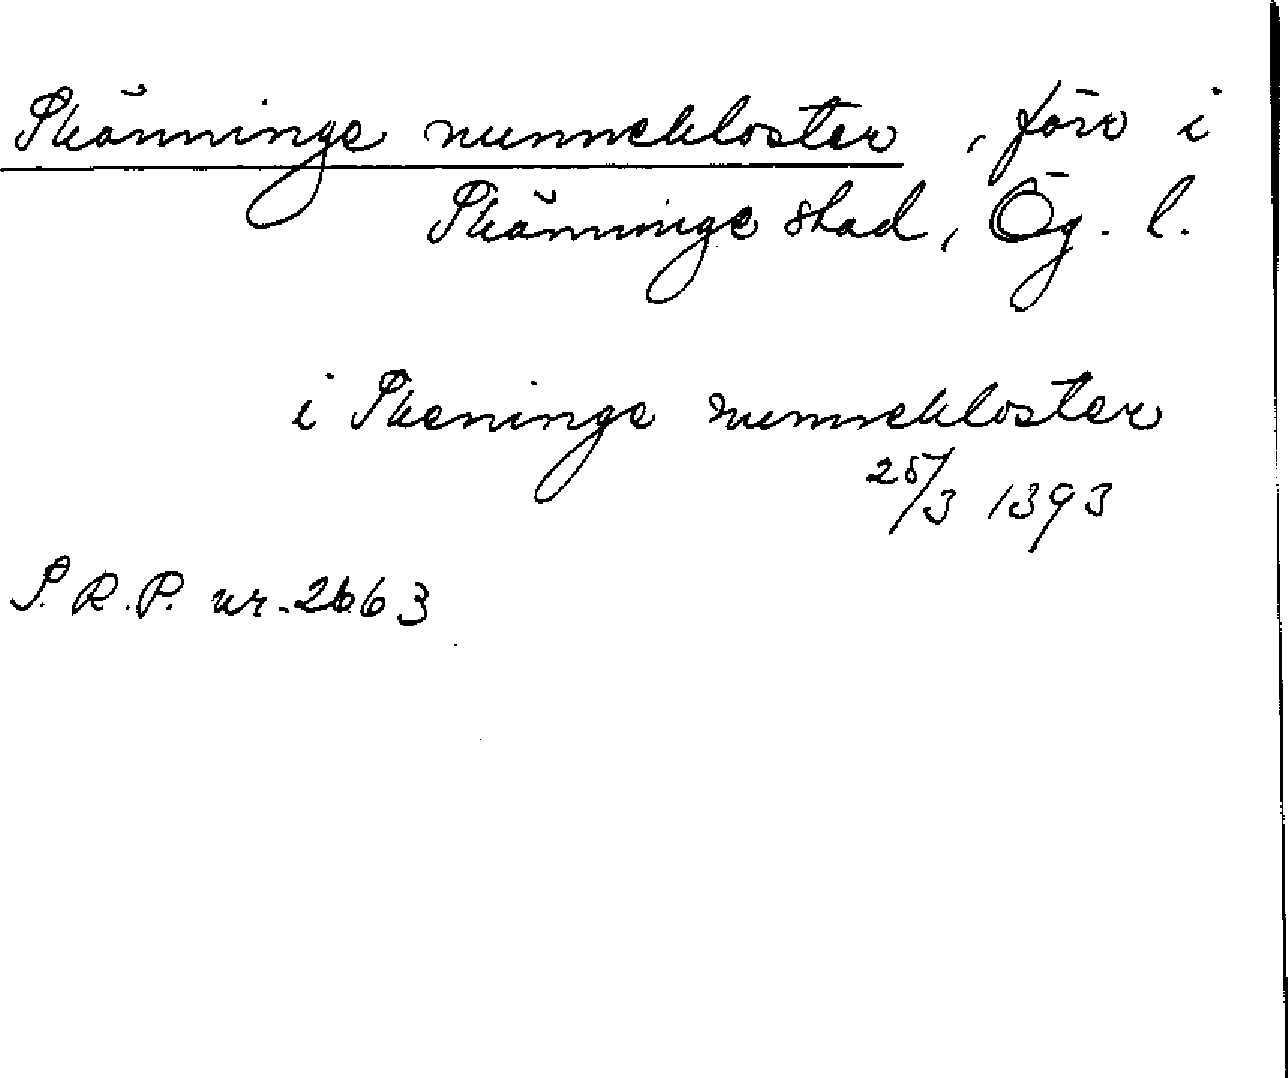 Skänninge nunnekloster, förr i
Skänninge stad, Ög. l.
i Skeninge nunnekloster
25/3 1393
S.R.P. nr. 2663